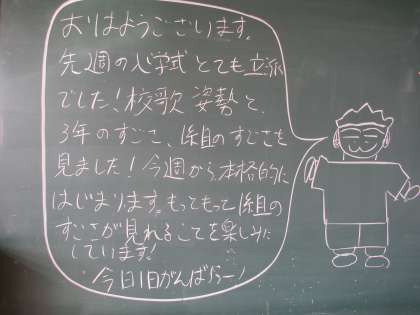 おはようございます。
先週の入学式とても立派
でした！校歌 姿勢 と、
3年のすごさ、1組のすごさを
見ました！今週から本格的に
はじまります。もってもって1組の
すごさが見れることを楽しみに
しています！
今日1日がんばろー！